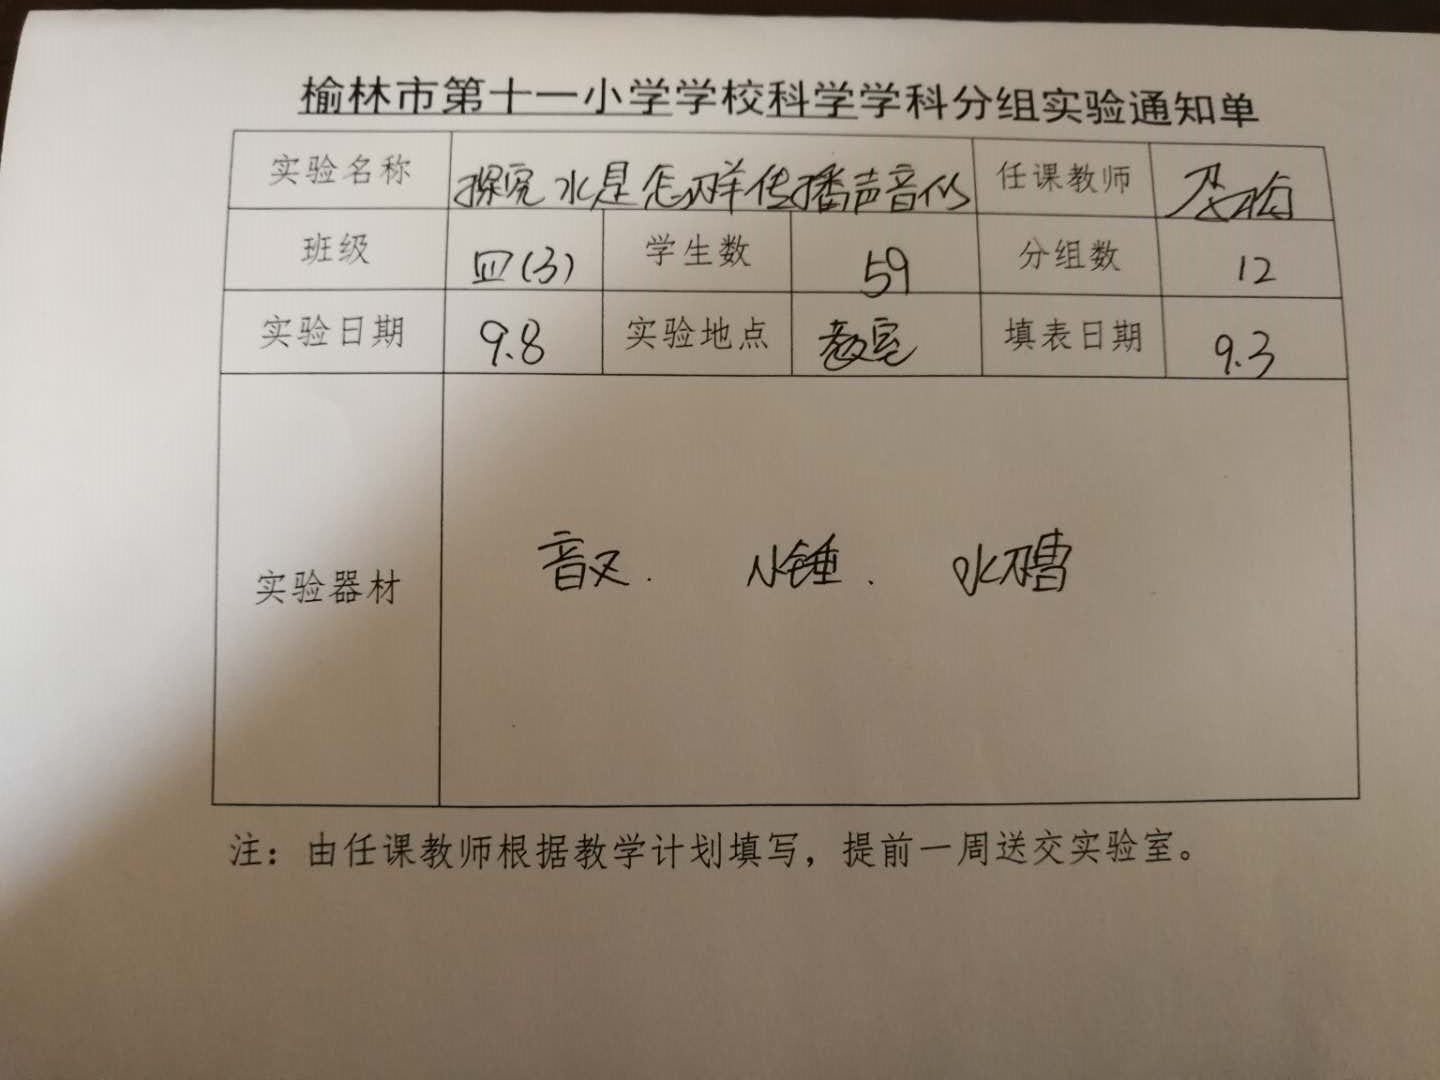 榆林市第十一小学学校科学学科分组实验通知单
实验名称 探究水是怎样传播声音的 任课教师
班级 四(3) 学生数 59 分组数 12
实验日期 9.8 实验地点 教室 填表日期 9.3
实验器材 音叉. 小锤. 水槽
注：由任课教师根据教学计划填写，提前一周送交实验室。